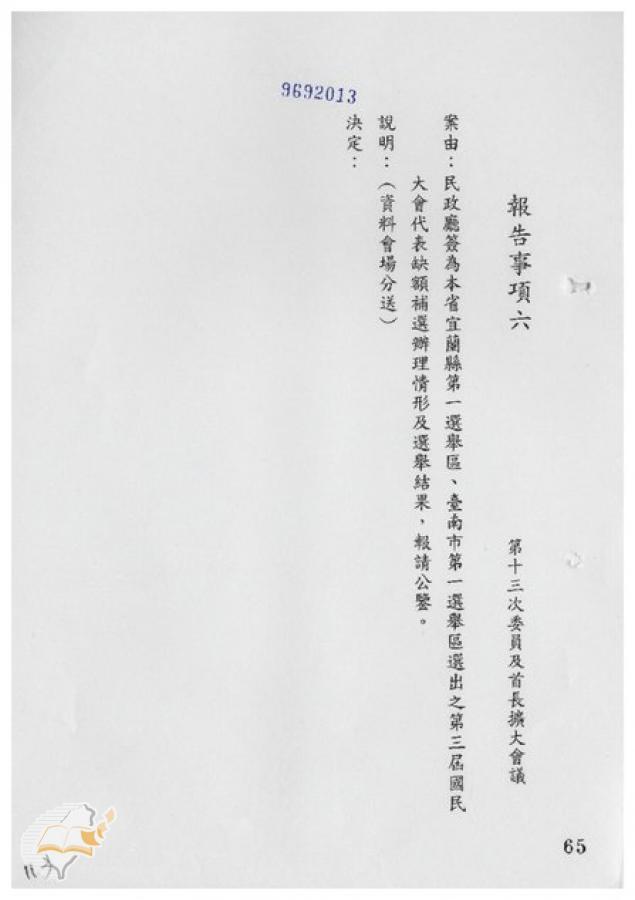 9692013
報告事項六
第十三次委員及首長擴大會議
案由：民政廳簽為本省宜蘭縣第一選舉區、臺南市第一選舉區選出之第三屆國民
大會代表缺額補選辦理情形及選舉結果，報請公鑒。
說明：（資料會場分送）
決定：
65